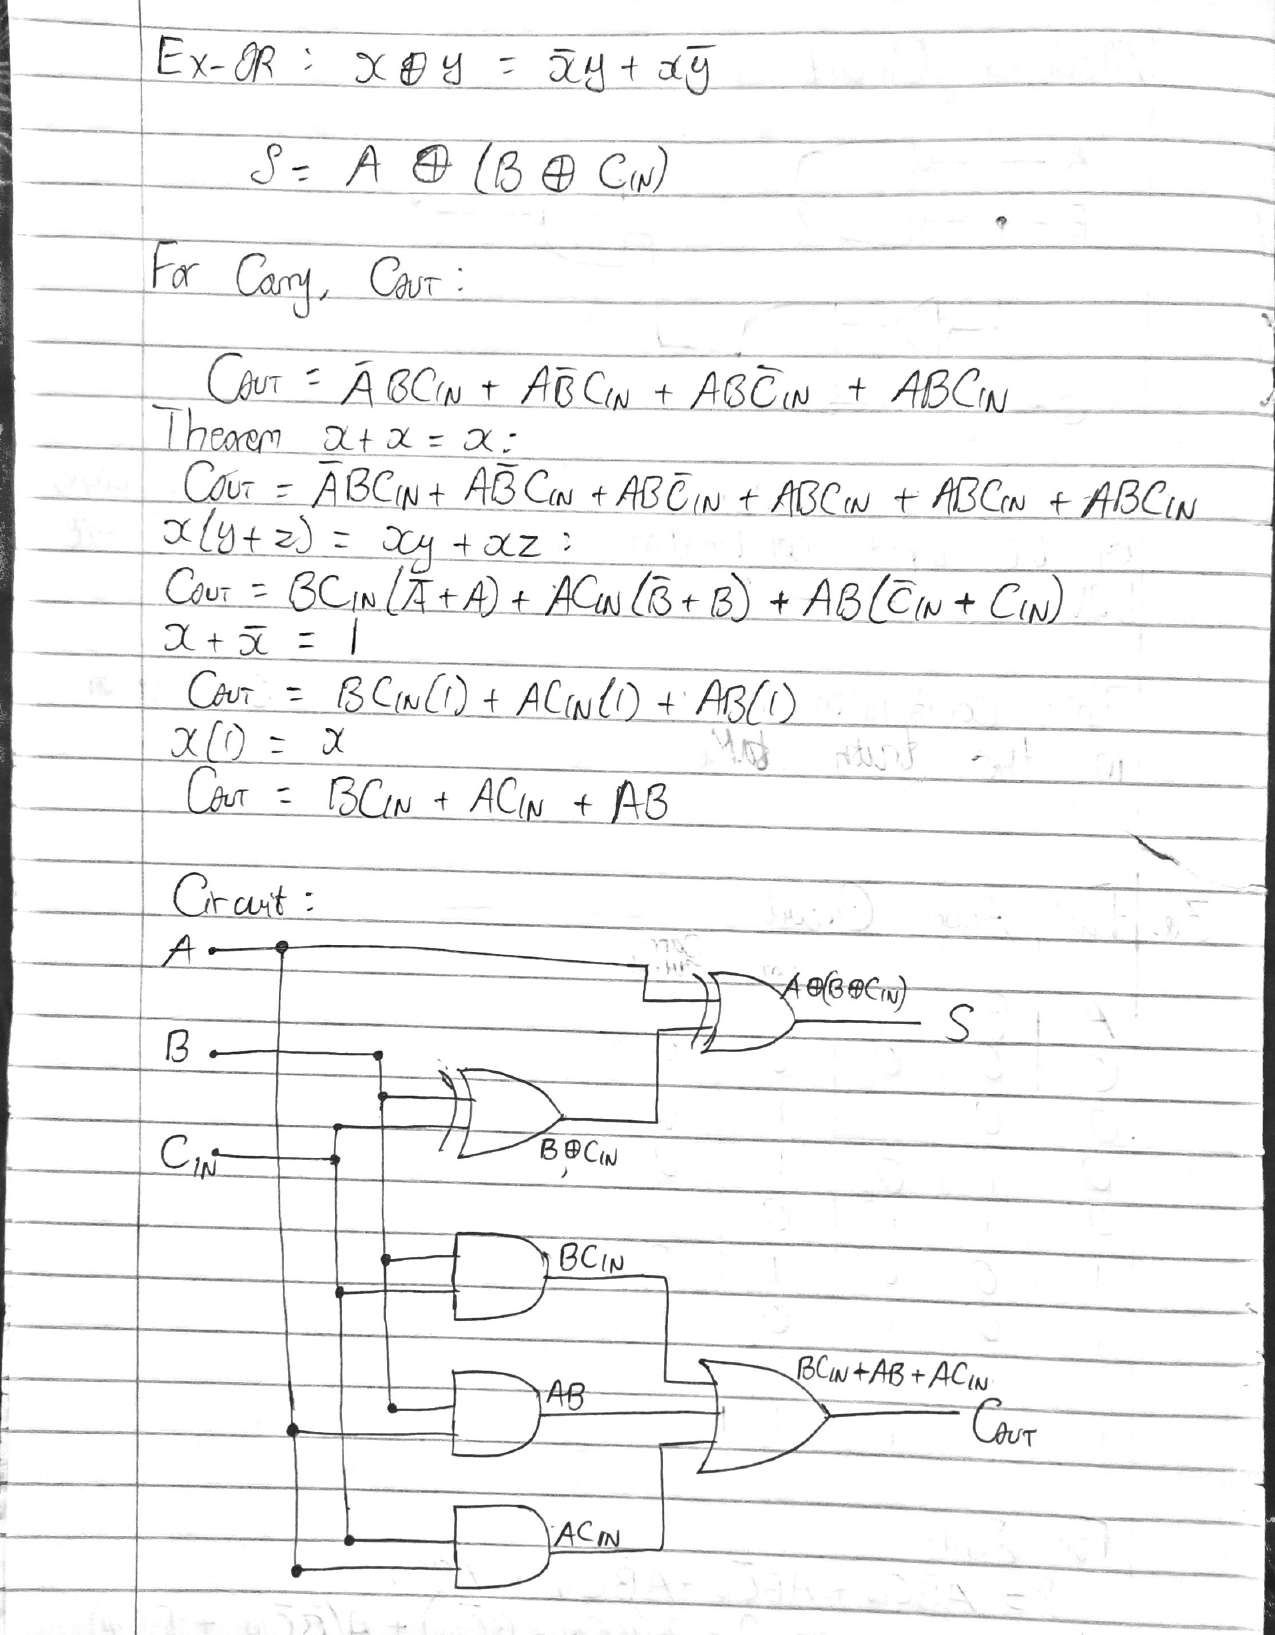 Ex-OR : x ⊕ y = x̄y + xȳ
S = A ⊕ (B ⊕ CIN)
For Carry, COUT :
COUT = ĀBCIN + AB̄CIN + ABC̄IN + ABCIN
Theorem x + x = x :
COUT = ĀBCIN + AB̄CIN + ABC̄IN + ABCIN + ABCIN + ABCIN
x(y+z) = xy + xz :
COUT = BCIN(Ā+A) + ACIN(B̄+B) + AB(C̄IN + CIN)
x + x̄ = 1
COUT = BCIN(1) + ACIN(1) + AB(1)
x(1) = x
COUT = BCIN + ACIN + AB
Circuit :
A
A⊕(B⊕CIN)
S
B
CIN
B⊕CIN
BCIN
BCIN + AB + ACIN
AB
COUT
ACIN